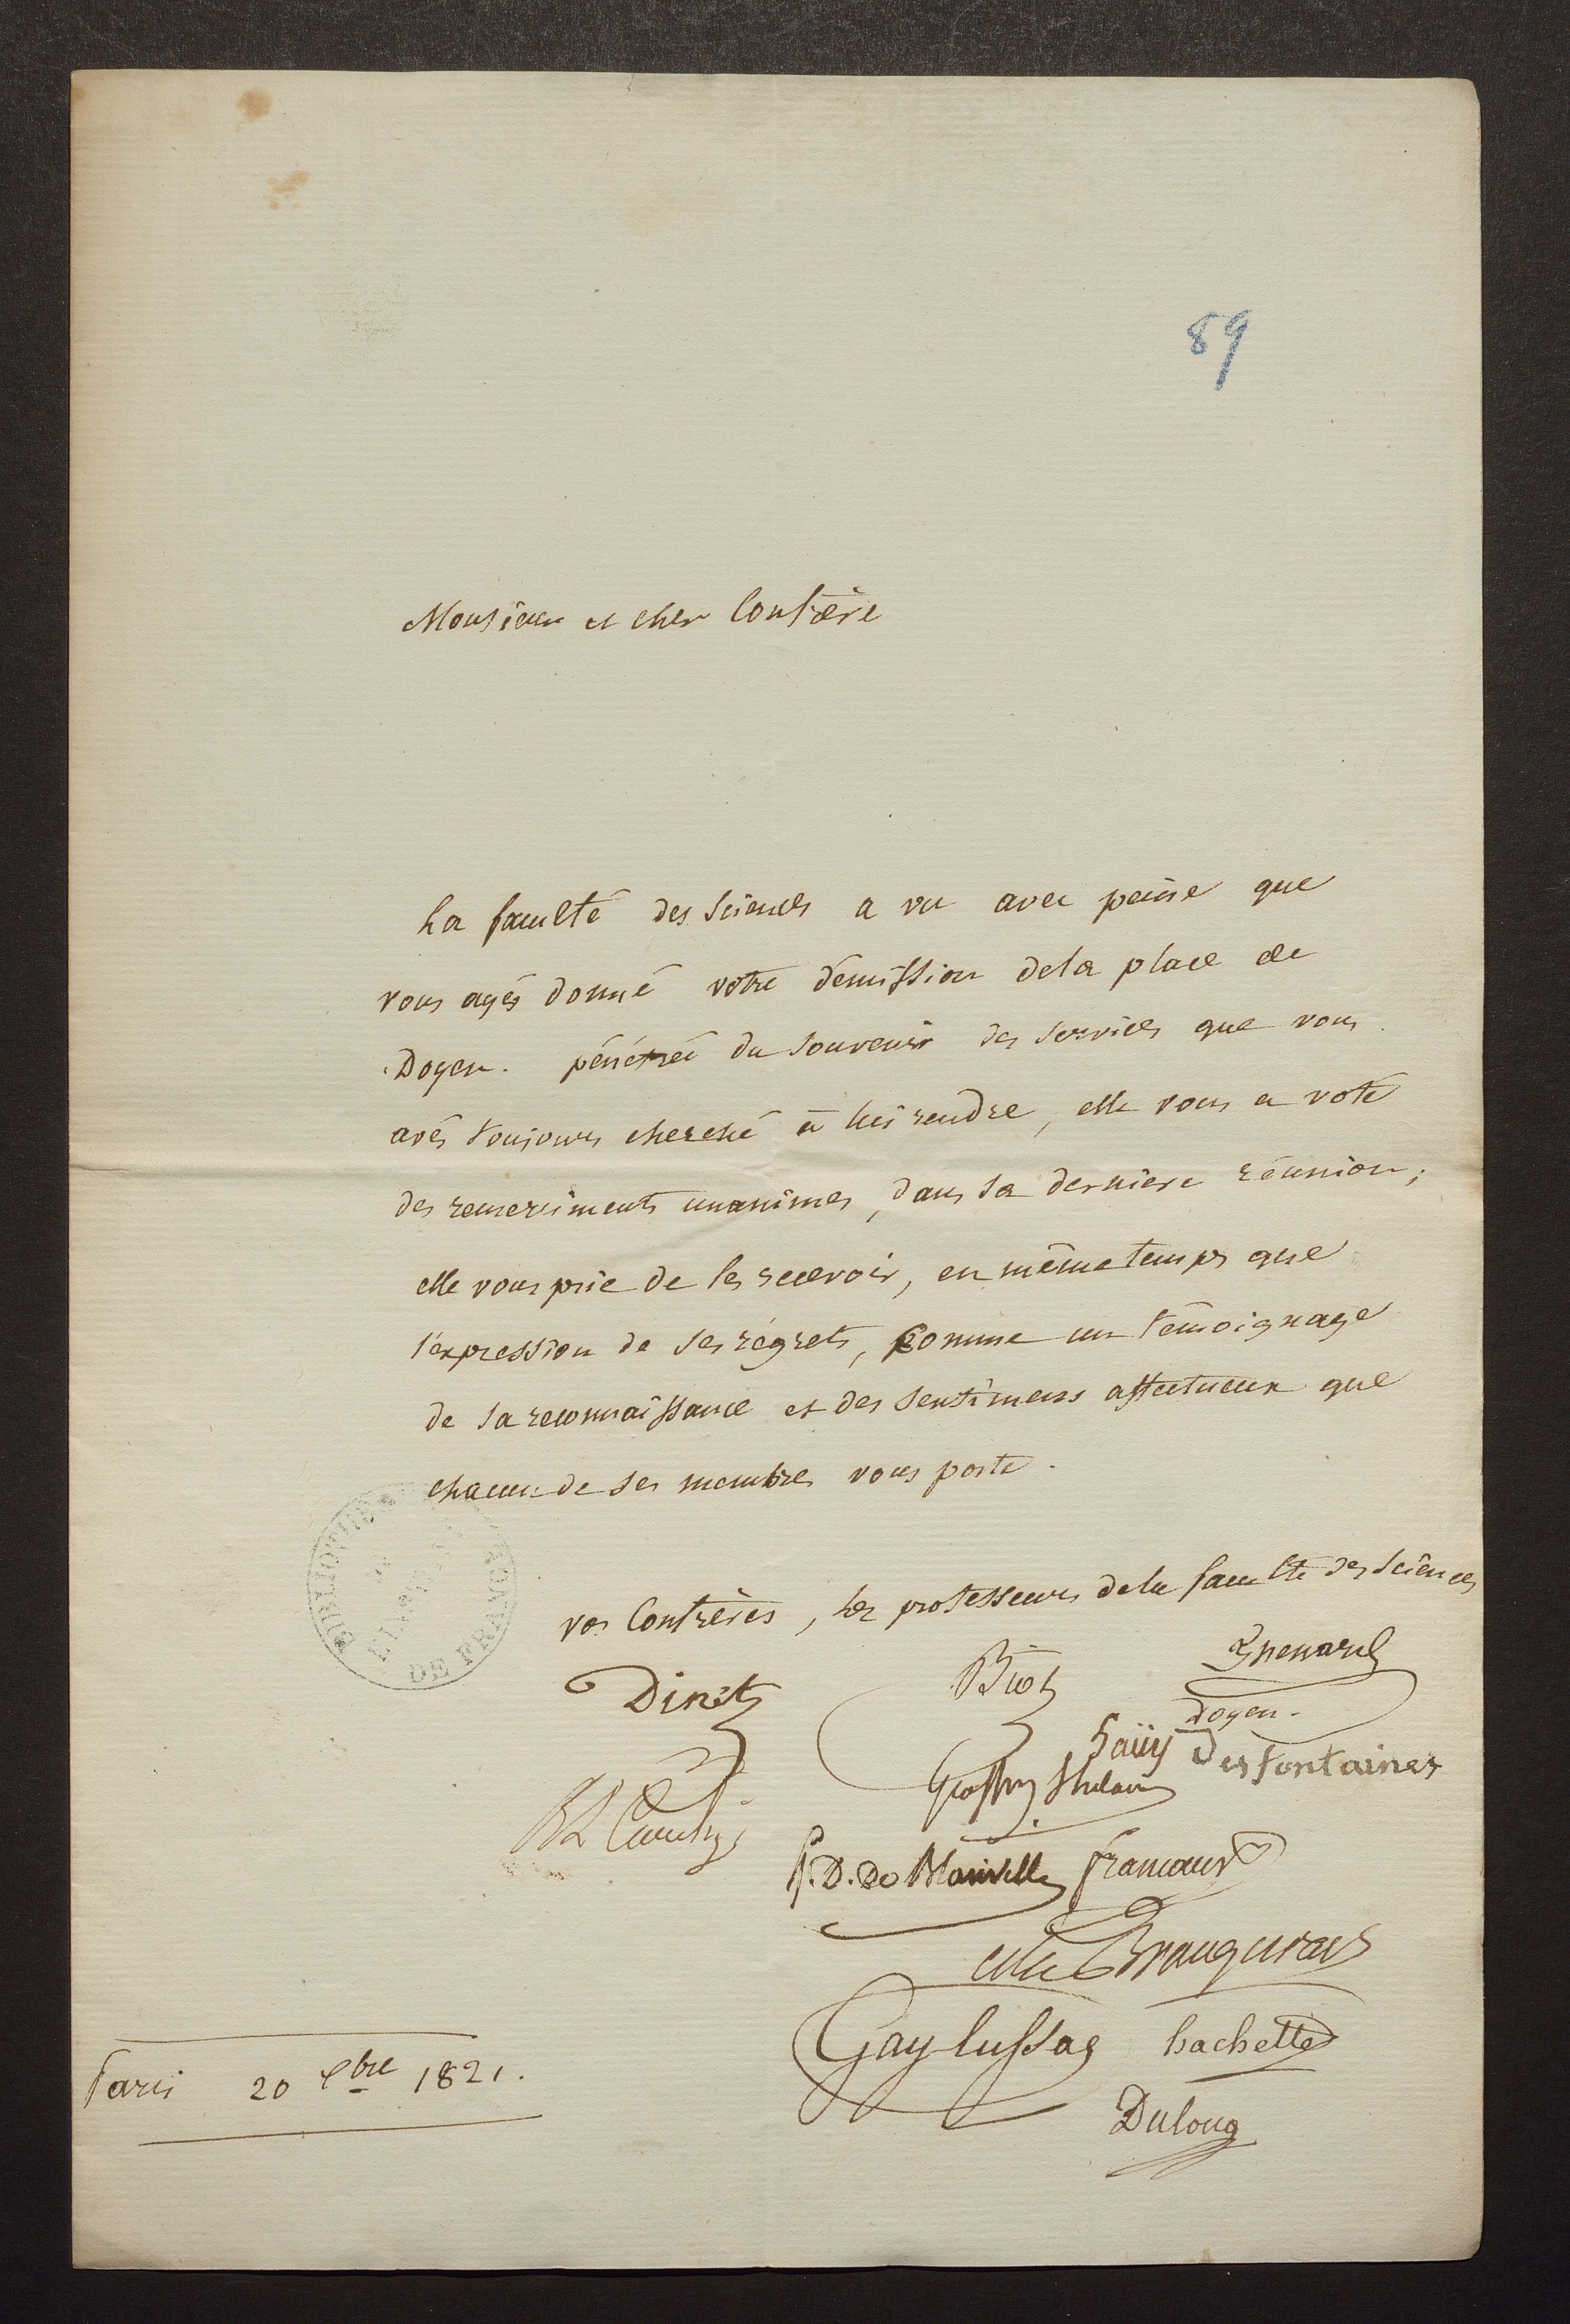 89
Monsieur et cher Confrère
La faculté des sciences a vu avec peine que
vous ayés donné votre démission de la place de
Doyen. pénétrée du souvenir des services que vous
avés toujours cherché à lui rendre, elle vous a voté
des remerciments unanimes, dans sa derniere réunion;
elle vous prie de les recevoir, en même temps que
l'expression de ses régrets, comme un témoignage
de sa reconnaissance et des sentimens affectueux que
chacun de ses membres vous porte.
BIBLIOTHEQUE
DE FRANCE
vos Confrères, les professeurs de la faculté des sciences
Dinet Biot Thenard
Doyen.
haüy Desfontaines
Geoffroy St hilaire
A L Cauchy
h. D. De Blainville francœur
Alex Brongniart
Gay-lussac hachette
Paris 20 Xbre 1821.
Dulong